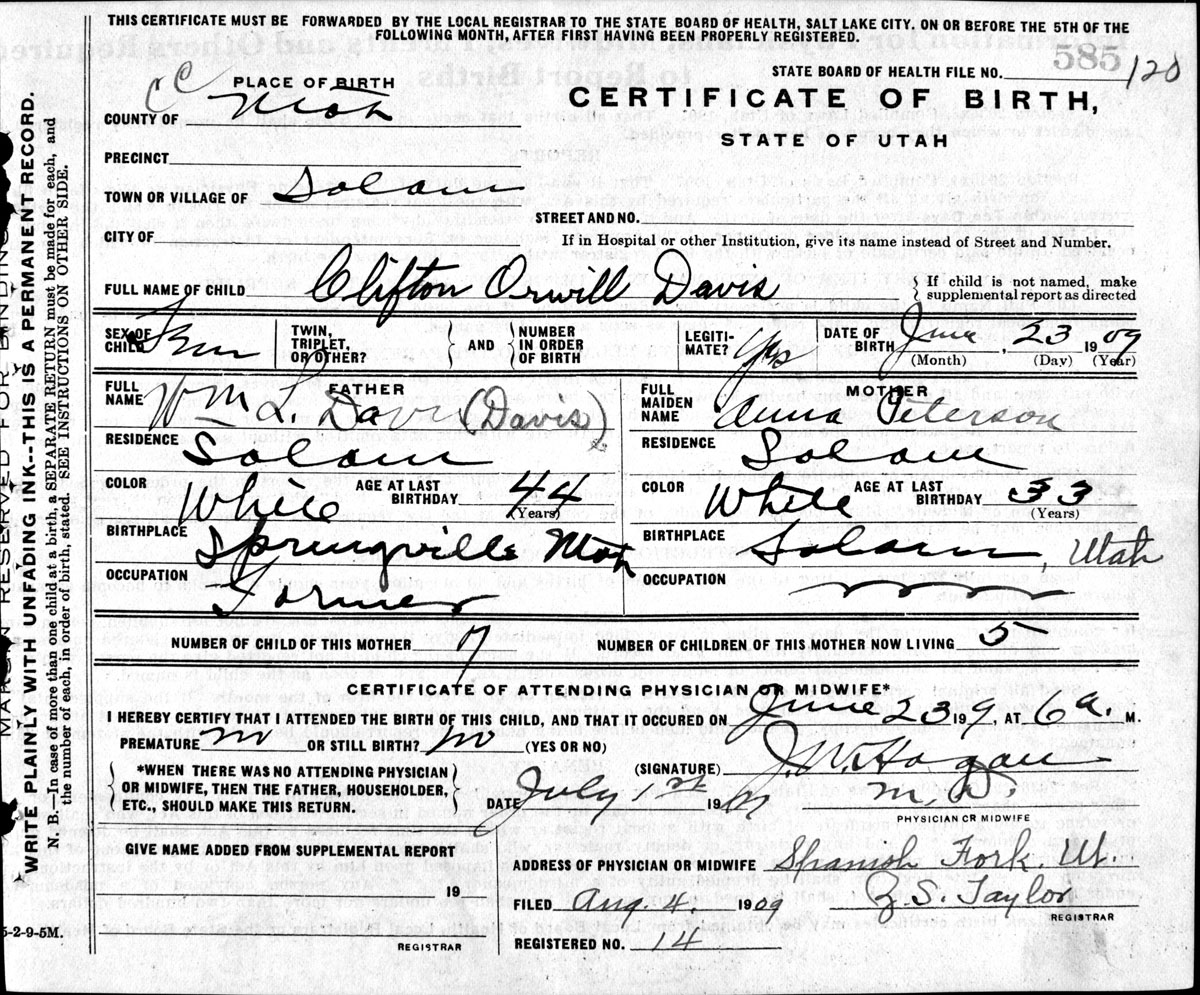 THIS CERTIFICATE MUST BE FORWARDED BY THE LOCAL REGISTRAR TO THE STATE BOARD OF HEALTH, SALT LAKE CITY, ON OR BEFORE THE 5TH OF THE
FOLLOWING MONTH, AFTER FIRST HAVING BEEN PROPERLY REGISTERED.
PLACE OF BIRTH
STATE BOARD OF HEALTH FILE NO. 585 120
COUNTY OF Utah
CERTIFICATE OF BIRTH,
STATE OF UTAH
PRECINCT
TOWN OR VILLAGE OF Salem
STREET AND NO.
CITY OF
If in Hospital or other Institution, give its name instead of Street and Number.
FULL NAME OF CHILD Clifton Orwill Davis
If child is not named, make
supplemental report as directed
SEX OF CHILD
TWIN, TRIPLET, OR OTHER? AND NUMBER IN ORDER OF BIRTH
LEGITIMATE? Yes
DATE OF BIRTH June, 23 1909
(Month) (Day) (Year)
FATHER
FULL NAME Wm L. Davis (Davis)
RESIDENCE Salem
COLOR White AGE AT LAST BIRTHDAY 44 (Years)
BIRTHPLACE Springville Utah
OCCUPATION Farmer
MOTHER
FULL MAIDEN NAME Anna Peterson
RESIDENCE Salem
COLOR White AGE AT LAST BIRTHDAY 33 (Years)
BIRTHPLACE Salem, Utah
OCCUPATION
NUMBER OF CHILD OF THIS MOTHER 7 NUMBER OF CHILDREN OF THIS MOTHER NOW LIVING 5
CERTIFICATE OF ATTENDING PHYSICIAN OR MIDWIFE*
I HEREBY CERTIFY THAT I ATTENDED THE BIRTH OF THIS CHILD, AND THAT IT OCCURED ON June 23 19 9, AT 6 a. M.
PREMATURE no OR STILL BIRTH? no (YES OR NO)
*WHEN THERE WAS NO ATTENDING PHYSICIAN
OR MIDWIFE, THEN THE FATHER, HOUSEHOLDER,
ETC., SHOULD MAKE THIS RETURN.
(SIGNATURE) J. W. Hagan
M. D
PHYSICIAN OR MIDWIFE
DATE July 1st 19
GIVE NAME ADDED FROM SUPPLEMENTAL REPORT
19
REGISTRAR
ADDRESS OF PHYSICIAN OR MIDWIFE Spanish Fork, Ut.
FILED Aug. 4, 1909 Z. S. Taylor
REGISTRAR
REGISTERED NO. 14
5-2-9-5M.
MARGIN RESERVED FOR BINDING
WRITE PLAINLY WITH UNFADING INK--THIS IS A PERMANENT RECORD.
N. B.—In case of more than one child at a birth, a SEPARATE RETURN must be made for each, and
the number of each, in order of birth, stated. SEE INSTRUCTIONS ON OTHER SIDE.